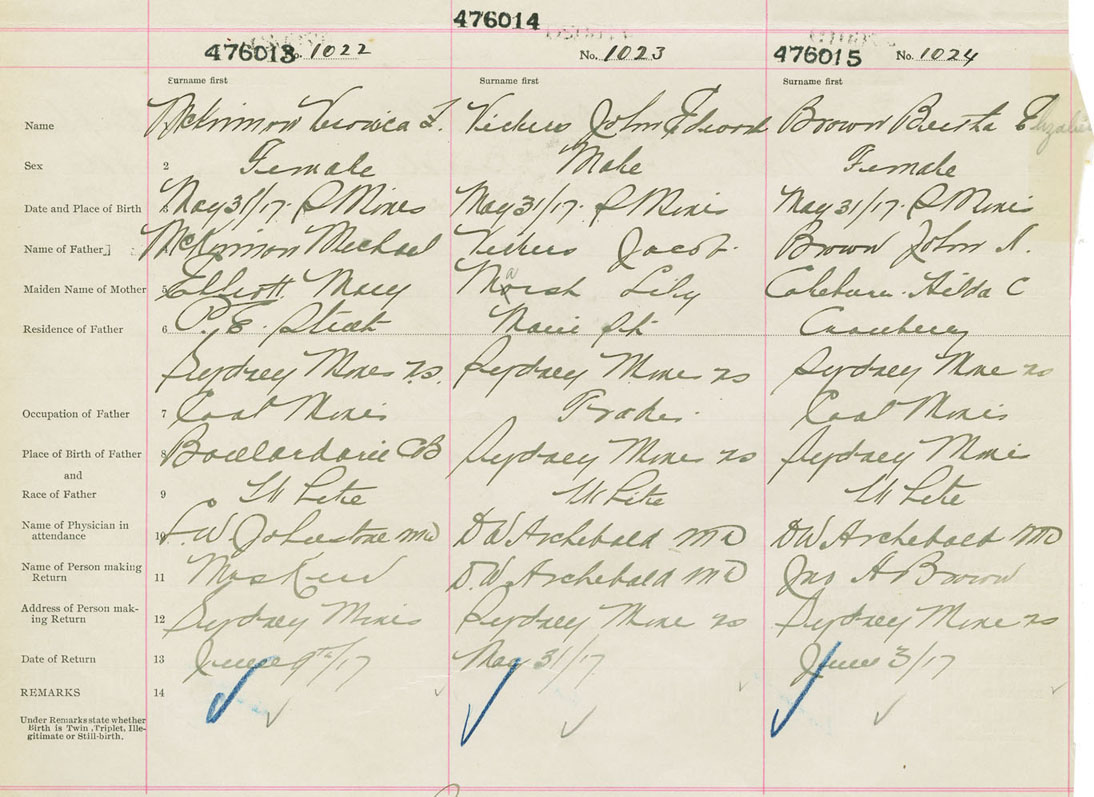 476014
476013 No. 1022 No. 1023 476015 No. 1024
Surname first Surname first Surname first
Name McKinnon Veronica F. Vickers John Edward Brown Bertha Elizabeth
Sex 2 Female Male Female
Date and Place of Birth 3 May 31/17. S Mines May 31/17. S Mines May 31/17. S Mines
Name of Father McKinnon Michael Vickers Jacob. Brown John A.
Maiden Name of Mother 5 Elliott Mary Marsh Lily Hilda C
Residence of Father 6 P. E. Street Marie St. Cranberry
Sydney Mines NS. Sydney Mines NS Sydney Mine NS
Occupation of Father 7 Coal Miner Coal Miner
Place of Birth of Father 8 Boulardarie CB Sydney Mines NS Sydney Mines
and
Race of Father 9 White White White
Name of Physician in
attendance 10 L.W Johnstone MD DW Archibald MD DW Archibald MD
Name of Person making
Return 11 D.W. Archibald MD Jno A Brown
Address of Person mak-
ing Return 12 Sydney Mines Sydney Mine NS Sydney Mine NS
Date of Return 13 June 9th/17 May 31/17. June 3/17
REMARKS 14
Under Remarks state whether
Birth is Twin, Triplet, Ille-
gitimate or Still-birth.